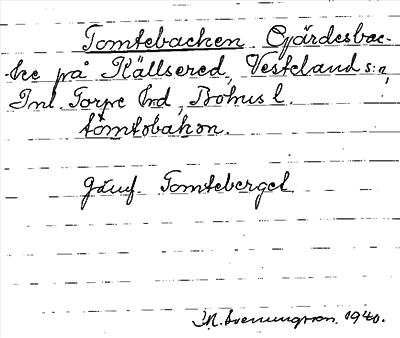 Tomtebacken Gärdesbac-
ke på Källsered, Vesteland s:n,
Inl. Torpe hd, Bohus l.
tomtobakon.
Jämf. Tomteberget
1940.